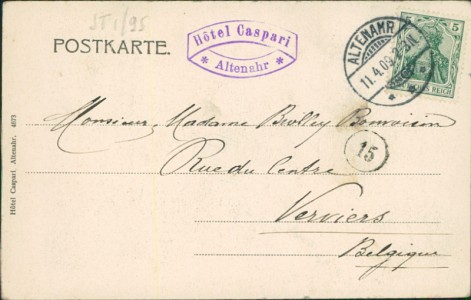 ST 1/95
POSTKARTE.
Hôtel Caspari
* Altenahr *
ALTENAHR
11.4.09.
5
REICH
Monsieur, Madame
15
Rue du Centre
Verviers
Belgique
Hôtel Caspari, Altenahr. 4073